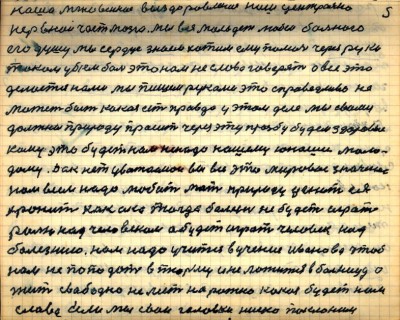 наша мгновенное выздоровление наш центрально 5
нервной част мозга. мы вся молодеж любого больного
его душу мы сердце знаем хотим ему помоч через руки
током убъем бол это нам не слово говорят а все это
делается нами мы пишем руками это справедливо не
может быт какая ест правда у этом деле мы сваими
должни природу просит через эту прозбу будеш здоровие
кому это будет нам надо нашему юноше моло-
дому. Как нет уважаемои вы все это мировое значение
нам всем надо любит мат природу ценит ее
хронит как ока тогда болезн не будет играт
рол над человеком а будет играт человек над
болезнию. нам надо учится в учение иванова чтоб
нам не попадат в тюрму и не ложится в болницу а
жит свабодно не лист на рожно какая будет нам
слава если мы сваи головки низко поклоним